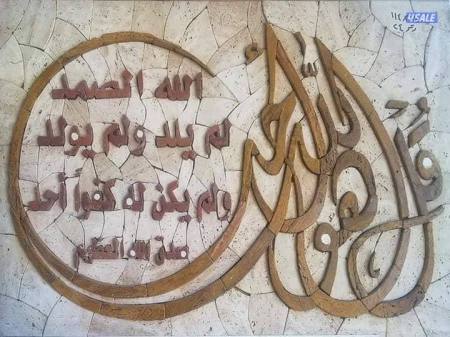 قل هو الله أحد
الله الصمد
لم يلد ولم يولد
ولم يكن له كفوا أحد
صدق الله العظيم
4SALE